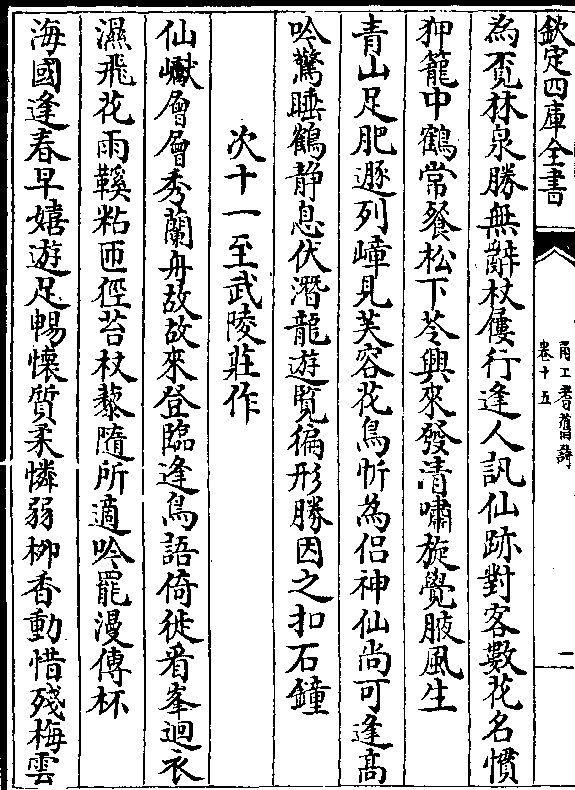 欽定四庫全書
甬上耆舊詩
卷十五
一
為覔林泉勝無辭杖屨行逢人訊仙跡對客數花名慣
狎籠中鶴常餐松下苓興來發清嘯旋覺腋風生
青山足肥遯列嶂見芙容花鳥忻為侣神仙尚可逢高
吟驚睡鶴静息伏潛龍遊覽徧形勝因之扣石鐘
次十一至武陵莊作
仙巘層層秀蘭舟故故來登臨逢鳥語倚徙看峯迴衣
濕飛花雨鞵粘匝徑苔杖藜隨所適吟罷漫傳杯
海國逢春早嬉遊足暢懷質柔憐弱柳香動惜殘梅雲